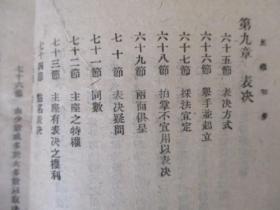 第九章 表決
六十五節 表決方式
六十六節 舉手並起立
六十七節 採法宜定
六十八節 拍掌不宜用以表决
六十九節 兩面俱呈
七十節 表决疑問
七十一節 同數
七十二節 主座之特權
七十三節 主座有表决之權利
七十四節 點名表决
七十六節